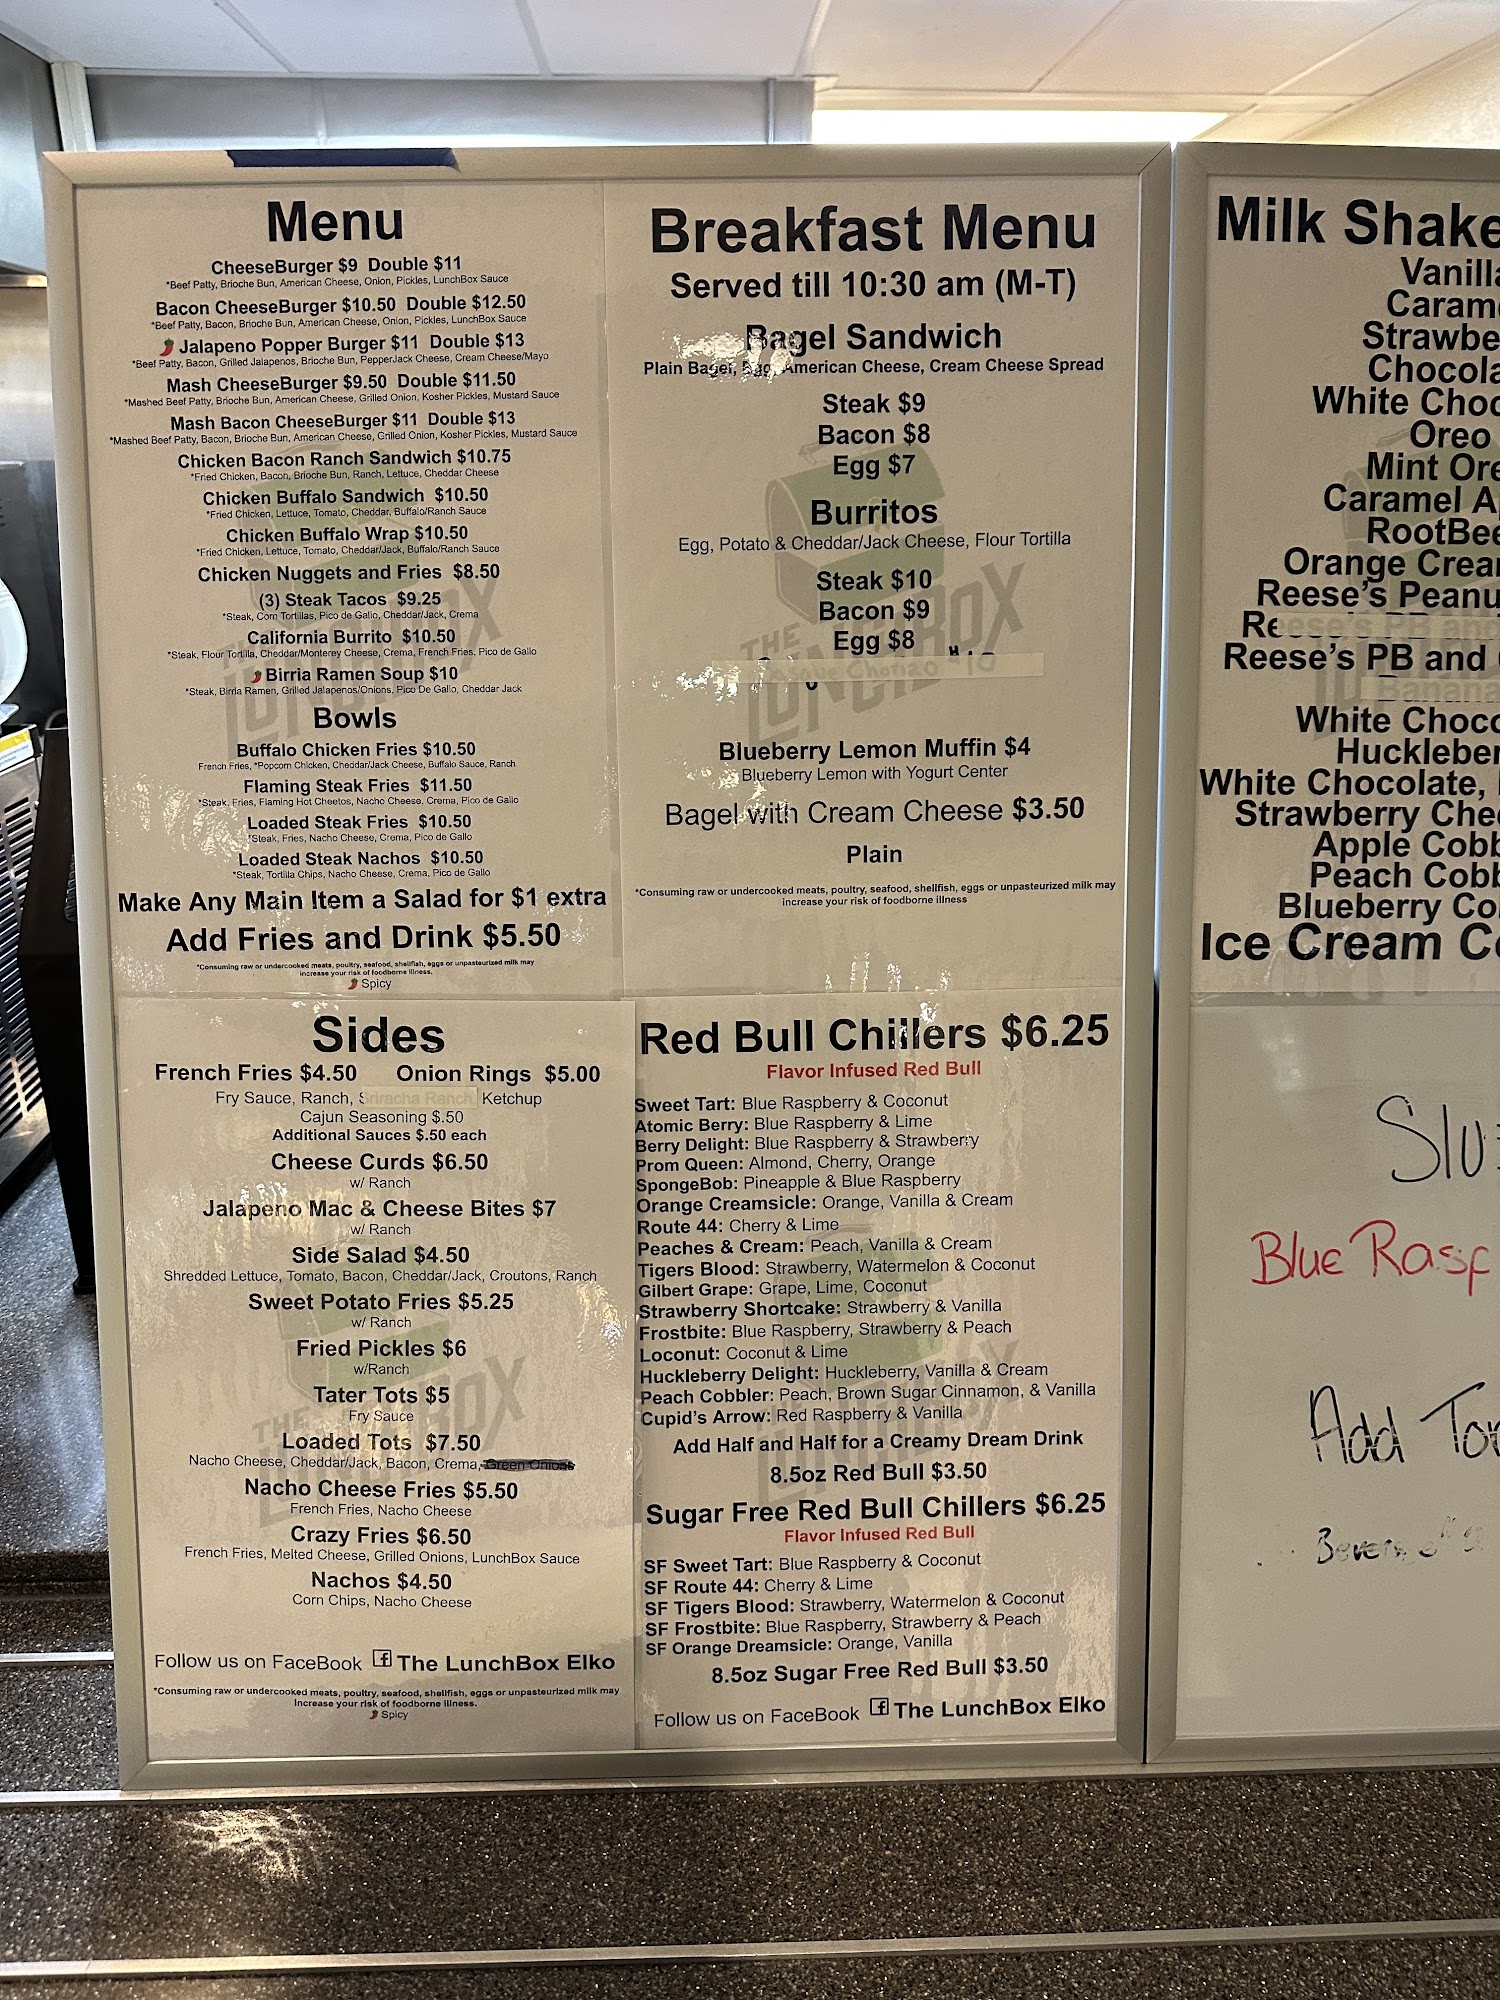 Menu
CheeseBurger $9 Double $11
*Beef Patty, Brioche Bun, American Cheese, Onion, Pickles, LunchBox Sauce
Bacon CheeseBurger $10.50 Double $12.50
*Beef Patty, Bacon, Brioche Bun, American Cheese, Onion, Pickles, LunchBox Sauce
Jalapeno Popper Burger $11 Double $13
*Beef Patty, Bacon, Grilled Jalapenos, Brioche Bun, PepperJack Cheese, Cream Cheese/Mayo
Mash CheeseBurger $9.50 Double $11.50
*Mashed Beef Patty, Brioche Bun, American Cheese, Grilled Onion, Kosher Pickles, Mustard Sauce
Mash Bacon CheeseBurger $11 Double $13
*Mashed Beef Patty, Bacon, Brioche Bun, American Cheese, Grilled Onion, Kosher Pickles, Mustard Sauce
Chicken Bacon Ranch Sandwich $10.75
*Fried Chicken, Bacon, Brioche Bun, Ranch, Lettuce, Cheddar Cheese
Chicken Buffalo Sandwich $10.50
*Fried Chicken, Lettuce, Tomato, Cheddar, Buffalo/Ranch Sauce
Chicken Buffalo Wrap $10.50
*Fried Chicken, Lettuce, Tomato, Cheddar/Jack, Buffalo/Ranch Sauce
Chicken Nuggets and Fries $8.50
(3) Steak Tacos $9.25
*Steak, Corn Tortillas, Pico de Gallo, Cheddar/Jack, Crema
California Burrito $10.50
*Steak, Flour Tortilla, Cheddar/Monterey Cheese, Crema, French Fries, Pico de Gallo
Birria Ramen Soup $10
*Steak, Birria Ramen, Grilled Jalapenos/Onions, Pico De Gallo, Cheddar Jack
Bowls
Buffalo Chicken Fries $10.50
French Fries, *Popcorn Chicken, Cheddar/Jack Cheese, Buffalo Sauce, Ranch
Flaming Steak Fries $11.50
*Steak, Fries, Flaming Hot Cheetos, Nacho Cheese, Crema, Pico de Gallo
Loaded Steak Fries $10.50
*Steak, Fries, Nacho Cheese, Crema, Pico de Gallo
Loaded Steak Nachos $10.50
*Steak, Tortilla Chips, Nacho Cheese, Crema, Pico de Gallo
Make Any Main Item a Salad for $1 extra
Add Fries and Drink $5.50
*Consuming raw or undercooked meats, poultry, seafood, shellfish, eggs or unpasteurized milk may
increase your risk of foodborne illness.
Spicy
Breakfast Menu
Served till 10:30 am (M-T)
Bagel Sandwich
Plain Bagel, Egg, American Cheese, Cream Cheese Spread
Steak $9
Bacon $8
Egg $7
Burritos
Egg, Potato & Cheddar/Jack Cheese, Flour Tortilla
Steak $10
Bacon $9
Egg $8
THE LUNCHBOX
Blueberry Lemon Muffin $4
Blueberry Lemon with Yogurt Center
Bagel with Cream Cheese $3.50
Plain
*Consuming raw or undercooked meats, poultry, seafood, shellfish, eggs or unpasteurized milk may
increase your risk of foodborne illness
Sides
French Fries $4.50 Onion Rings $5.00
Fry Sauce, Ranch, Sriracha Ranch, Ketchup
Cajun Seasoning $.50
Additional Sauces $.50 each
Cheese Curds $6.50
w/ Ranch
Jalapeno Mac & Cheese Bites $7
w/ Ranch
Side Salad $4.50
Shredded Lettuce, Tomato, Bacon, Cheddar/Jack, Croutons, Ranch
Sweet Potato Fries $5.25
w/ Ranch
Fried Pickles $6
w/Ranch
Tater Tots $5
Fry Sauce
Loaded Tots $7.50
Nacho Cheese, Cheddar/Jack, Bacon, Crema, Green Onions
Nacho Cheese Fries $5.50
French Fries, Nacho Cheese
Crazy Fries $6.50
French Fries, Melted Cheese, Grilled Onions, LunchBox Sauce
Nachos $4.50
Corn Chips, Nacho Cheese
Follow us on FaceBook The LunchBox Elko
*Consuming raw or undercooked meats, poultry, seafood, shellfish, eggs or unpasteurized milk may
increase your risk of foodborne illness.
Spicy
Red Bull Chillers $6.25
Flavor Infused Red Bull
Sweet Tart: Blue Raspberry & Coconut
Atomic Berry: Blue Raspberry & Lime
Berry Delight: Blue Raspberry & Strawberry
Prom Queen: Almond, Cherry, Orange
SpongeBob: Pineapple & Blue Raspberry
Orange Creamsicle: Orange, Vanilla & Cream
Route 44: Cherry & Lime
Peaches & Cream: Peach, Vanilla & Cream
Tigers Blood: Strawberry, Watermelon & Coconut
Gilbert Grape: Grape, Lime, Coconut
Strawberry Shortcake: Strawberry & Vanilla
Frostbite: Blue Raspberry, Strawberry & Peach
Loconut: Coconut & Lime
Huckleberry Delight: Huckleberry, Vanilla & Cream
Peach Cobbler: Peach, Brown Sugar Cinnamon, & Vanilla
Cupid's Arrow: Red Raspberry & Vanilla
Add Half and Half for a Creamy Dream Drink
8.5oz Red Bull $3.50
Sugar Free Red Bull Chillers $6.25
Flavor Infused Red Bull
SF Sweet Tart: Blue Raspberry & Coconut
SF Route 44: Cherry & Lime
SF Tigers Blood: Strawberry, Watermelon & Coconut
SF Frostbite: Blue Raspberry, Strawberry & Peach
SF Orange Dreamsicle: Orange, Vanilla
8.5oz Sugar Free Red Bull $3.50
Follow us on FaceBook The LunchBox Elko
Milk Shake
Vanilla
Caram
Strawbe
Chocola
White Choc
Oreo
Mint Ore
Caramel A
RootBee
Orange Crea
Reese's Peanu
Reese's PB and
Reese's PB and
Banana
White Choco
Huckleber
White Chocolate,
Strawberry Chee
Apple Cobb
Peach Cobb
Blueberry Co
Ice Cream Co
Slu
Blue Rasp
Add Tor